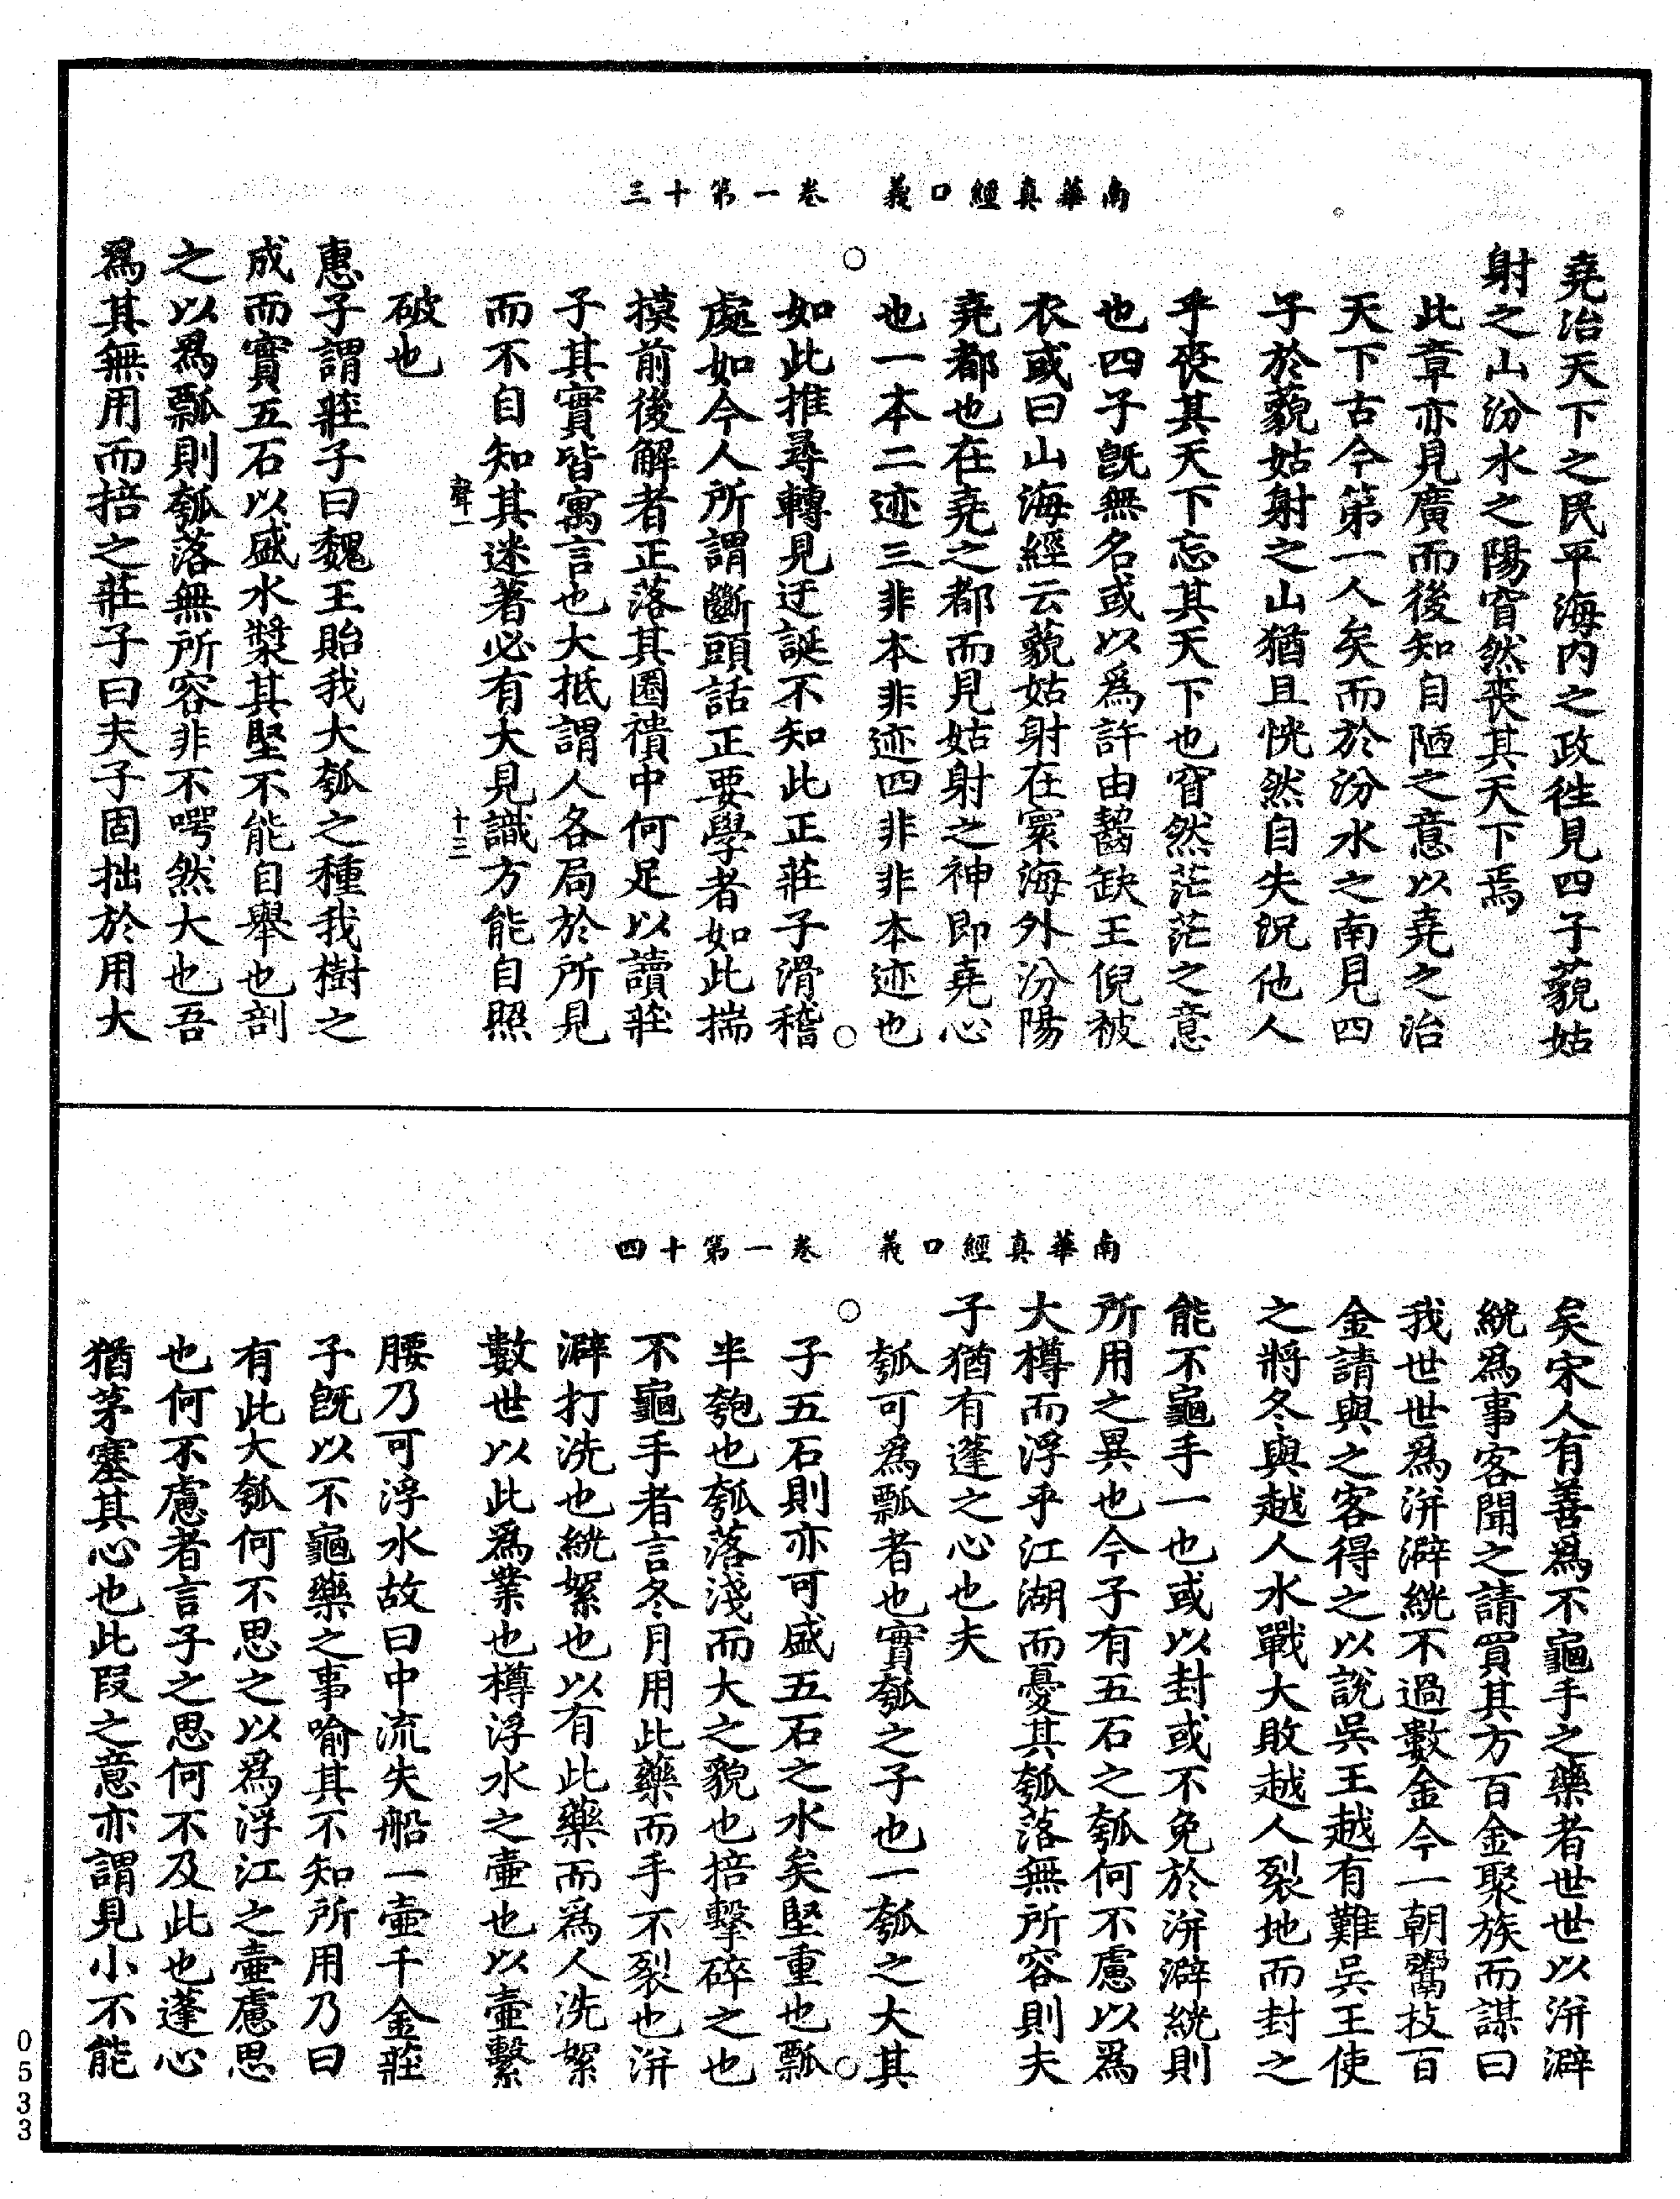 南華真經口義　卷一第十三
堯治天下之民平海内之政徃見四子藐姑
射之山汾水之陽窅然喪其天下焉
此章亦見廣而後知自陋之意以堯之治
天下古今第一人矣而於汾水之南見四
子於藐姑射之山猶且恍然自失況他人
乎喪其天下忘其天下也窅然茫茫之意
也四子旣無名或以爲許由齧缺王倪被
衣或曰山海經云藐姑射在寰海外汾陽
堯都也在堯之都而見姑射之神即堯心
也一本二迹三非本非迹四非非本迹也
如此推尋轉見迂誕不知此正莊子滑稽
處如今人所謂斷頭話正要學者如此揣
摸前後解者正落其圈襀中何足以讀莊
子其實皆寓言也大抵謂人各局於所見
而不自知其迷著必有大見識方能自照
聲一　十三
破也
惠子謂莊子曰魏王貽我大瓠之種我樹之
成而實五石以盛水漿其堅不能自舉也剖
之以爲瓢則瓠落無所容非不呺然大也吾
爲其無用而掊之莊子曰夫子固拙於用大
南華真經口義　卷一第十四
矣宋人有善爲不龜手之藥者世世以洴澼
絖爲事客聞之請買其方百金聚族而謀曰
我世世爲洴澼絖不過數金今一朝鬻技百
金請與之客得之以說吳王越有難吳王使
之將冬與越人水戰大敗越人裂地而封之
能不龜手一也或以封或不免於洴澼絖則
所用之異也今子有五石之瓠何不慮以爲
大樽而浮乎江湖而憂其瓠落無所容則夫
子猶有蓬之心也夫
瓠可爲瓢者也實瓠之子也一瓠之大其
子五石則亦可盛五石之水矣堅重也瓢
半匏也瓠落淺而大之貌也掊擊碎之也
不龜手者言冬月用此藥而手不裂也洴
澼打洗也絖絮也以有此藥而爲人洗絮
數世以此爲業也樽浮水之壺也以壺繫
腰乃可浮水故曰中流失船一壺千金莊
子旣以不龜藥之事喻其不知所用乃曰
有此大瓠何不思之以爲浮江之壺慮思
也何不慮者言子之思何不及此也蓬心
猶茅塞其心也此叚之意亦謂見小不能
0533